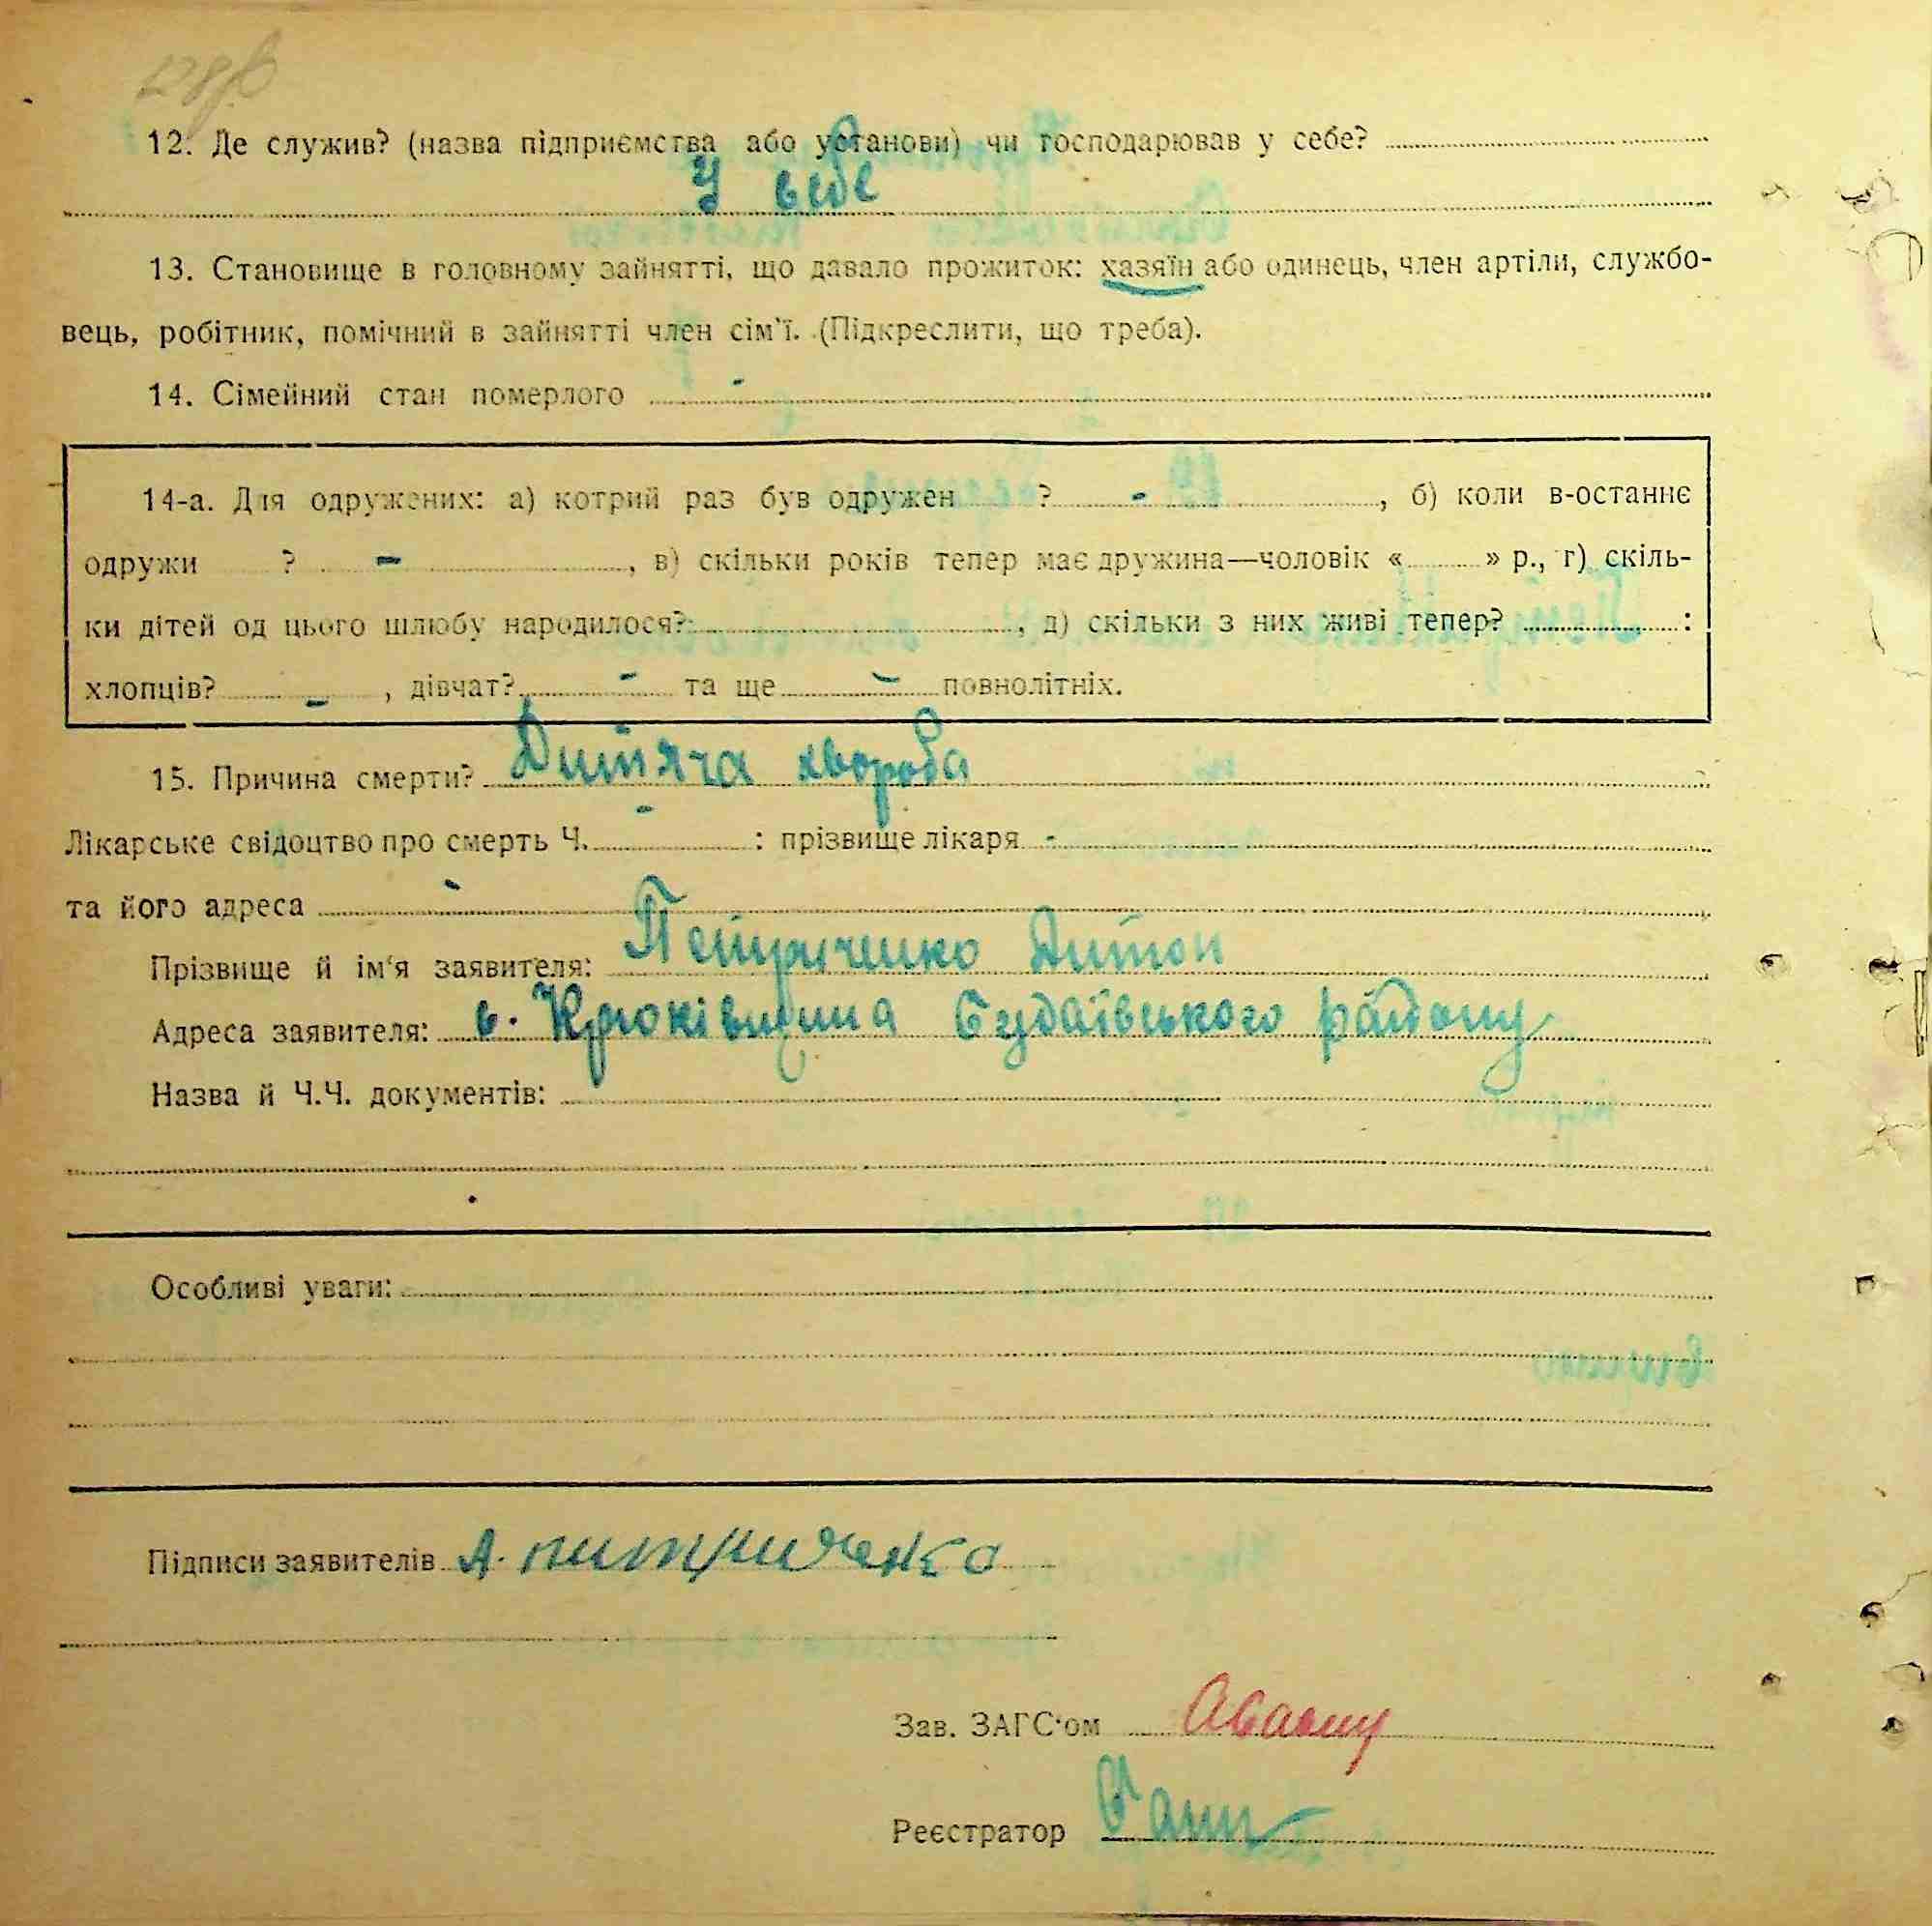 12. Де служив? (назва підприємства або установи) чи господарював у себе?
У себе
13. Становище в головному зайнятті, що давало прожиток: хазяїн або одинець, член артіли, службо-
вець, робітник, помічний в зайнятті член сім'ї. (Підкреслити, що треба).
14. Сімейний стан померлого -
14-а. Для одружених: а) котрий раз був одружен ? -, б) коли в-останнє
одружи ? -, в) скільки років тепер має дружина—чоловік « » р., г) скіль-
ки дітей од цього шлюбу народилося?, д) скільки з них живі тепер? :
хлопців? -, дівчат? - та ще - повнолітніх.
15. Причина смерти? Дитяча хвороба
Лікарське свідоцтво про смерть Ч. - : прізвище лікаря -
та його адреса -
Прізвище й ім'я заявителя: Петриченко Антон
Адреса заявителя: с. Крюківщина Будаївського району
Назва й Ч.Ч. документів:
Особливі уваги:
Підписи заявителів А. питриченко
Зав. ЗАГС'ом
Реєстратор